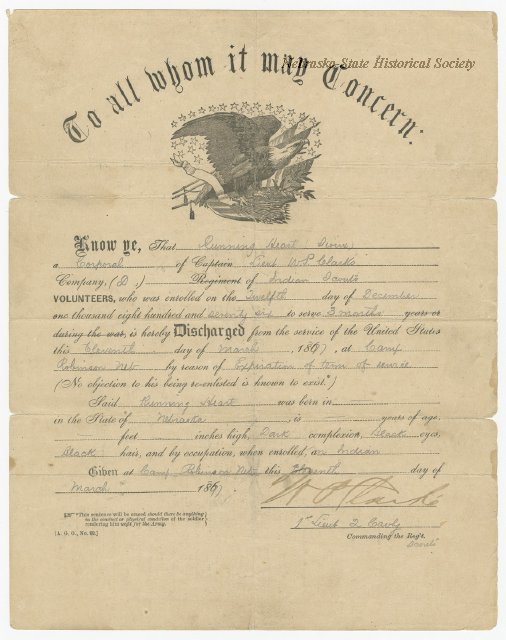 Nebraska State Historical Society
To all whom it may Concern:
Know ye, That Running Heart (Sioux)
a Corporal of Captain Lieut W.P. Clark's
Company, (D.) Regiment of Indian Scouts
VOLUNTEERS, who was enrolled on the twelfth day of December
one thousand eight hundred and seventy six to serve 3 months years or
during the war, is hereby Discharged from the service of the United States
this Eleventh day of March, 1867, at Camp
Robinson Neb by reason of Expiration of term of service
(No objection to his being re-enlisted is known to exist.*)
Said Running Heart was born in
in the State of Nebraska, is years of age,
feet inches high, Dark complexion, Black eyes,
Black hair, and by occupation, when enrolled, an Indian
Given at Camp Robinson Neb this Eleventh day of
March 1867
W P Clark
1st Lieut 2 Cavly
Commanding the Reg't.
Scouts
*This sentence will be erased should there be anything
in the conduct or physical condition of the soldier
rendering him unfit for the Army.
[A. G. O., No. 99.]